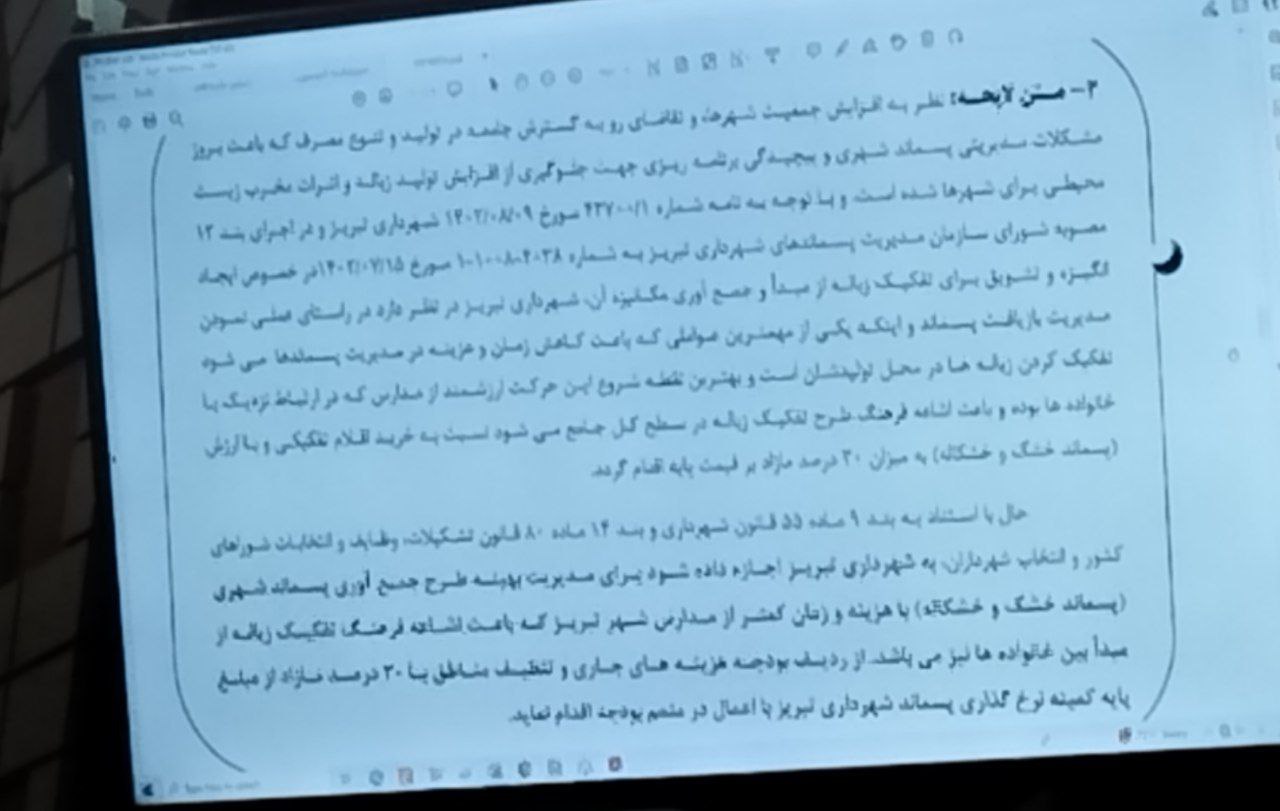 ۲- متن لایحه: نظر به افزایش جمعیت شهرها، و تقاضای رو به گسترش جامعه در تولید و تنوع مصرف که باعث بروز
مشکلات مدیریتی پسماند شهری و پیچیدگی برنامه ریزی جهت جلوگیری از افزایش تولید زباله و اثرات مخرب زیست
محیطی برای شهرها شده است، و با توجه به نامه شماره ۴۳۷۰۰/۱ مورخ ۱۴۰۲/۰۸/۰۹ شهرداری تبریز و در اجرای بند ۱۲
مصوبه شورای سازمان مدیریت پسماندهای شهرداری تبریز به شماره مورخ ۱۴۰۲/۰۷/۱۵ در خصوص ایجاد
انگیزه و تشویق برای تفکیک زباله از مبدأ و جمع آوری مکانیزه آن، شهرداری تبریز در نظر دارد در راستای عملی نمودن
مدیریت بازیافت پسماند و اینکه یکی از مهمترین عواملی که باعث کاهش زمان و هزینه در مدیریت پسماندها می شود
تفکیک کردن زباله ها در محل تولیدشان است و بهترین نقطه شروع این حرکت ارزشمند از مدارس که در ارتباط نزدیک با
خانواده ها بوده و باعث اشاعه فرهنگ طرح تفکیک زباله در سطح کل جامع می شود نسبت به خرید اقلام تفکیکی و باارزش
(پسماند خشک و خشکاله) به میزان ۳۰ درصد مازاد بر قیمت پایه اقدام گردد.
حال با استناد به بند ۹ ماده ۵۵ قانون شهرداری و بند ۱۴ ماده ۸۰ قانون تشکیلات، وظایف و انتخابات شوراهای
کشور و انتخاب شهرداران، به شهرداری تبریز اجازه داده شود برای مدیریت بهینه طرح جمع آوری پسماند شهری
(پسماند خشک و خشکاله) با هزینه و زمان کمتر از مدارس شهر تبریز که باعث اشاعه فرهنگ تفکیک زباله از
مبدأ بین خانواده ها نیز می باشد. از ردیف بودجه هزینه های جاری و تنظیف مناطق با ۳۰ درصد مازاد از مبلغ
پایه کمیته نرخ گذاری پسماند شهرداری تبریز با اعمال در متمم بودجه اقدام نماید.